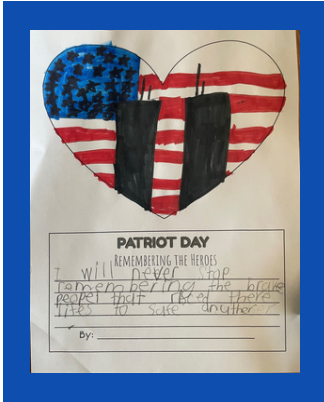 PATRIOT DAY
REMEMBERING THE HEROES
I will never stop
remembering the brave
peopel that risced there
lifes to safe anuther
By: